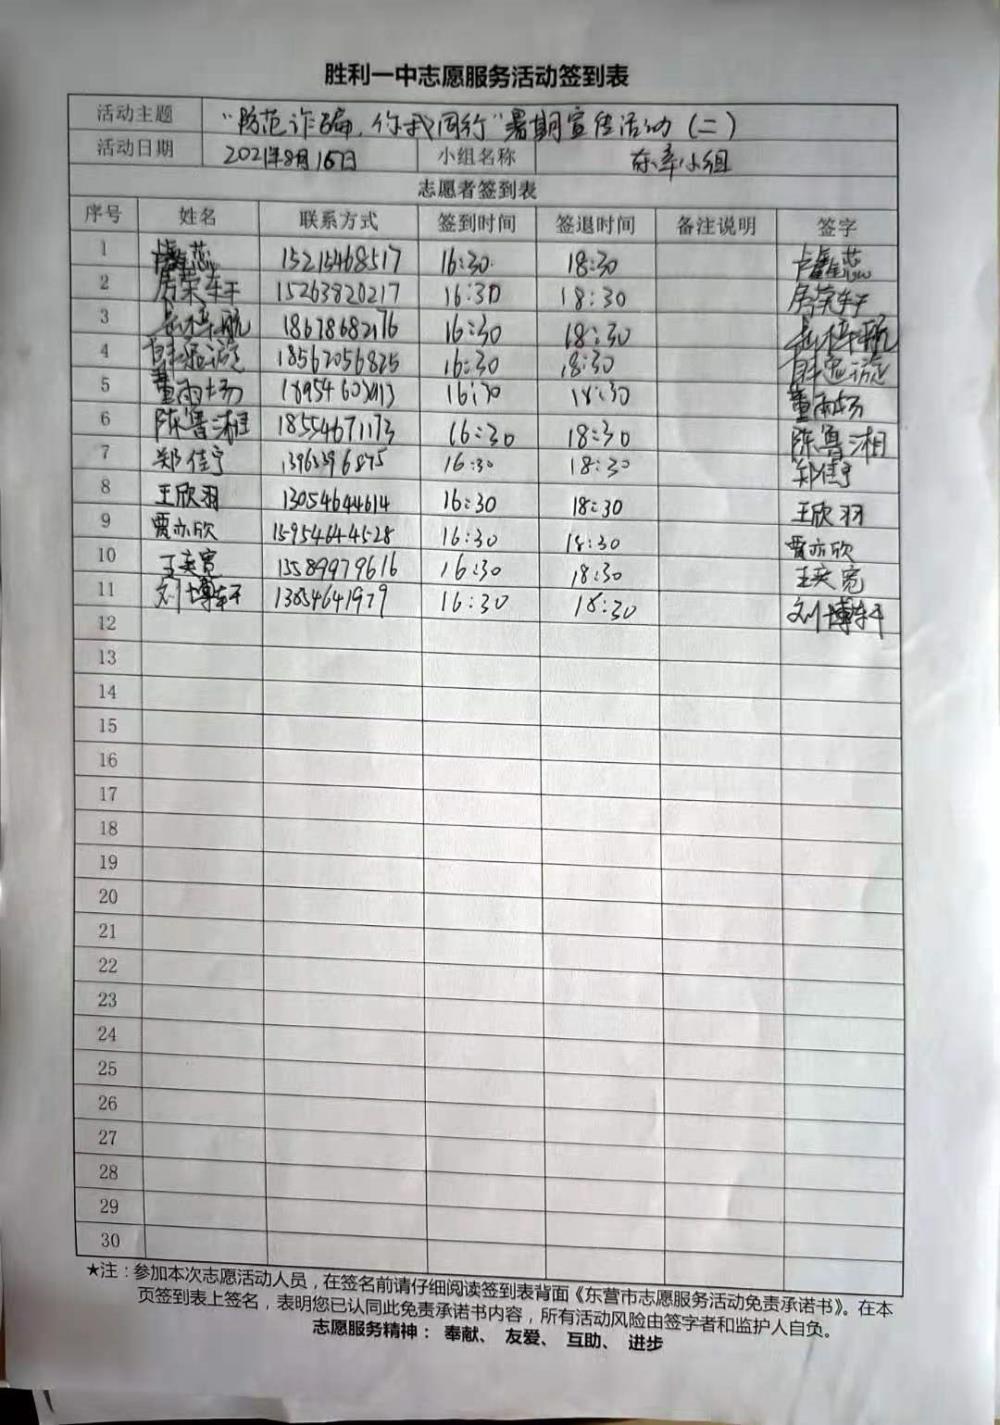 胜利一中志愿服务活动签到表
活动主题 “防范诈骗,你我同行”暑期宣传活动(二)
活动日期 2021年8月16日 小组名称 东辛小组
志愿者签到表
序号 姓名 联系方式 签到时间 签退时间 备注说明 签字
1 15215468517 16:30 18:30
2 房荣轩 15263820217 16:30 18:30 房荣轩
3 岳梓航 18678682176 16:30 18:30 岳梓航
4 18562056825 16:30 18:30
5 董雨场 16:30 18:30 董雨场
6 陈鲁湘 18554671173 16:30 18:30 陈鲁湘
7 郑佳宁 16:30 18:30 郑佳宁
8 王欣羽 13054644614 16:30 18:30 王欣羽
9 贾亦欣 15954644528 16:30 18:30 贾亦欣
10 王奕宽 15589979616 16:30 18:30 王奕宽
11 刘博轩 13854641979 16:30 18:30 刘博轩
12
13
14
15
16
17
18
19
20
21
22
23
24
25
26
27
28
29
30
★注:参加本次志愿活动人员,在签名前请仔细阅读签到表背面《东营市志愿服务活动免责承诺书》。在本
页签到表上签名,表明您已认同此免责承诺书内容,所有活动风险由签字者和监护人自负。
志愿服务精神: 奉献、 友爱、 互助、 进步